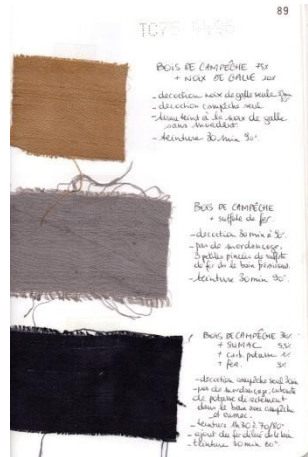 89
BOIS DE CAMPÊCHE
+ NOIX DE GALLE
- décoction noix de galle seule
- décoction campêche seule
à la noix de galle
sans mordant
- teinture 30 min 90°.
BOIS DE CAMPÊCHE
+ sulfate de fer
- décoction 30 min à 90°.
- pas de mordançage,
3 petites pincées de sulfate
de fer ds le bain
- teinture 30 min 90°.
BOIS DE CAMPÊCHE 30%
+ SUMAC
+ carb. potasse 1%
+ fer. 3%
- décoction campêche seul
- pas de mordançage,
de potasse directement
dans le bain avec campêche
et sumac.
- teinture 1h30 à 70/80°
- ajout du fer ds le bain
- teinture 30 min 80°.